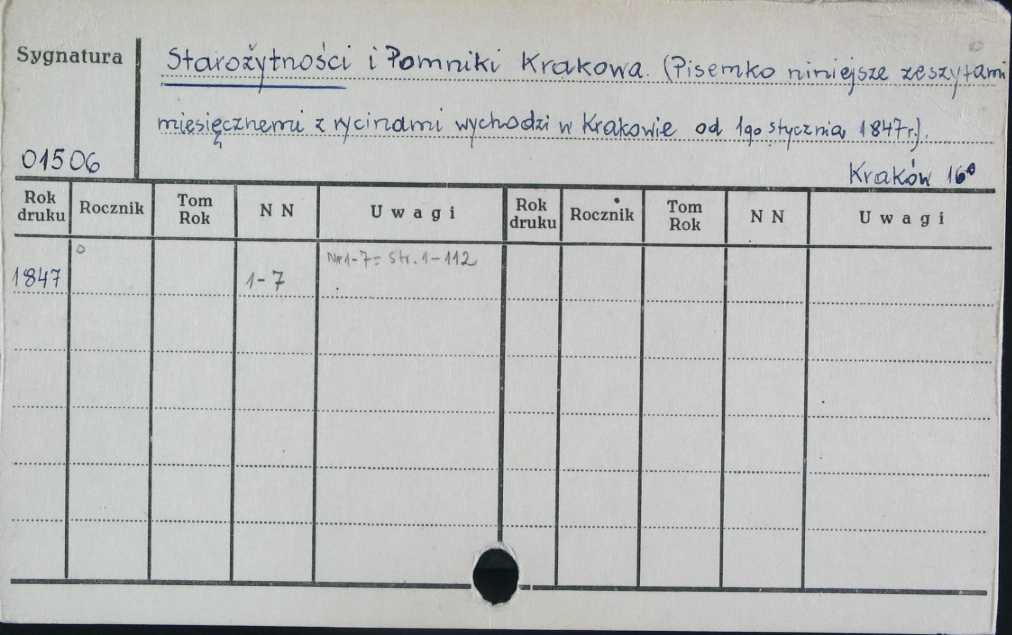 Sygnatura
Starożytności i Pomniki Krakowa. (Pisemko niniejsze zeszytami
miesięcznemi z rycinami wychodzi w Krakowie od 1go stycznia 1847r.).
01506
Kraków 16°
Rok druku Rocznik Tom Rok N N Uwagi Rok druku Rocznik Tom Rok N N Uwagi
1847 1-7 Nr 1-7 = Str. 1-112